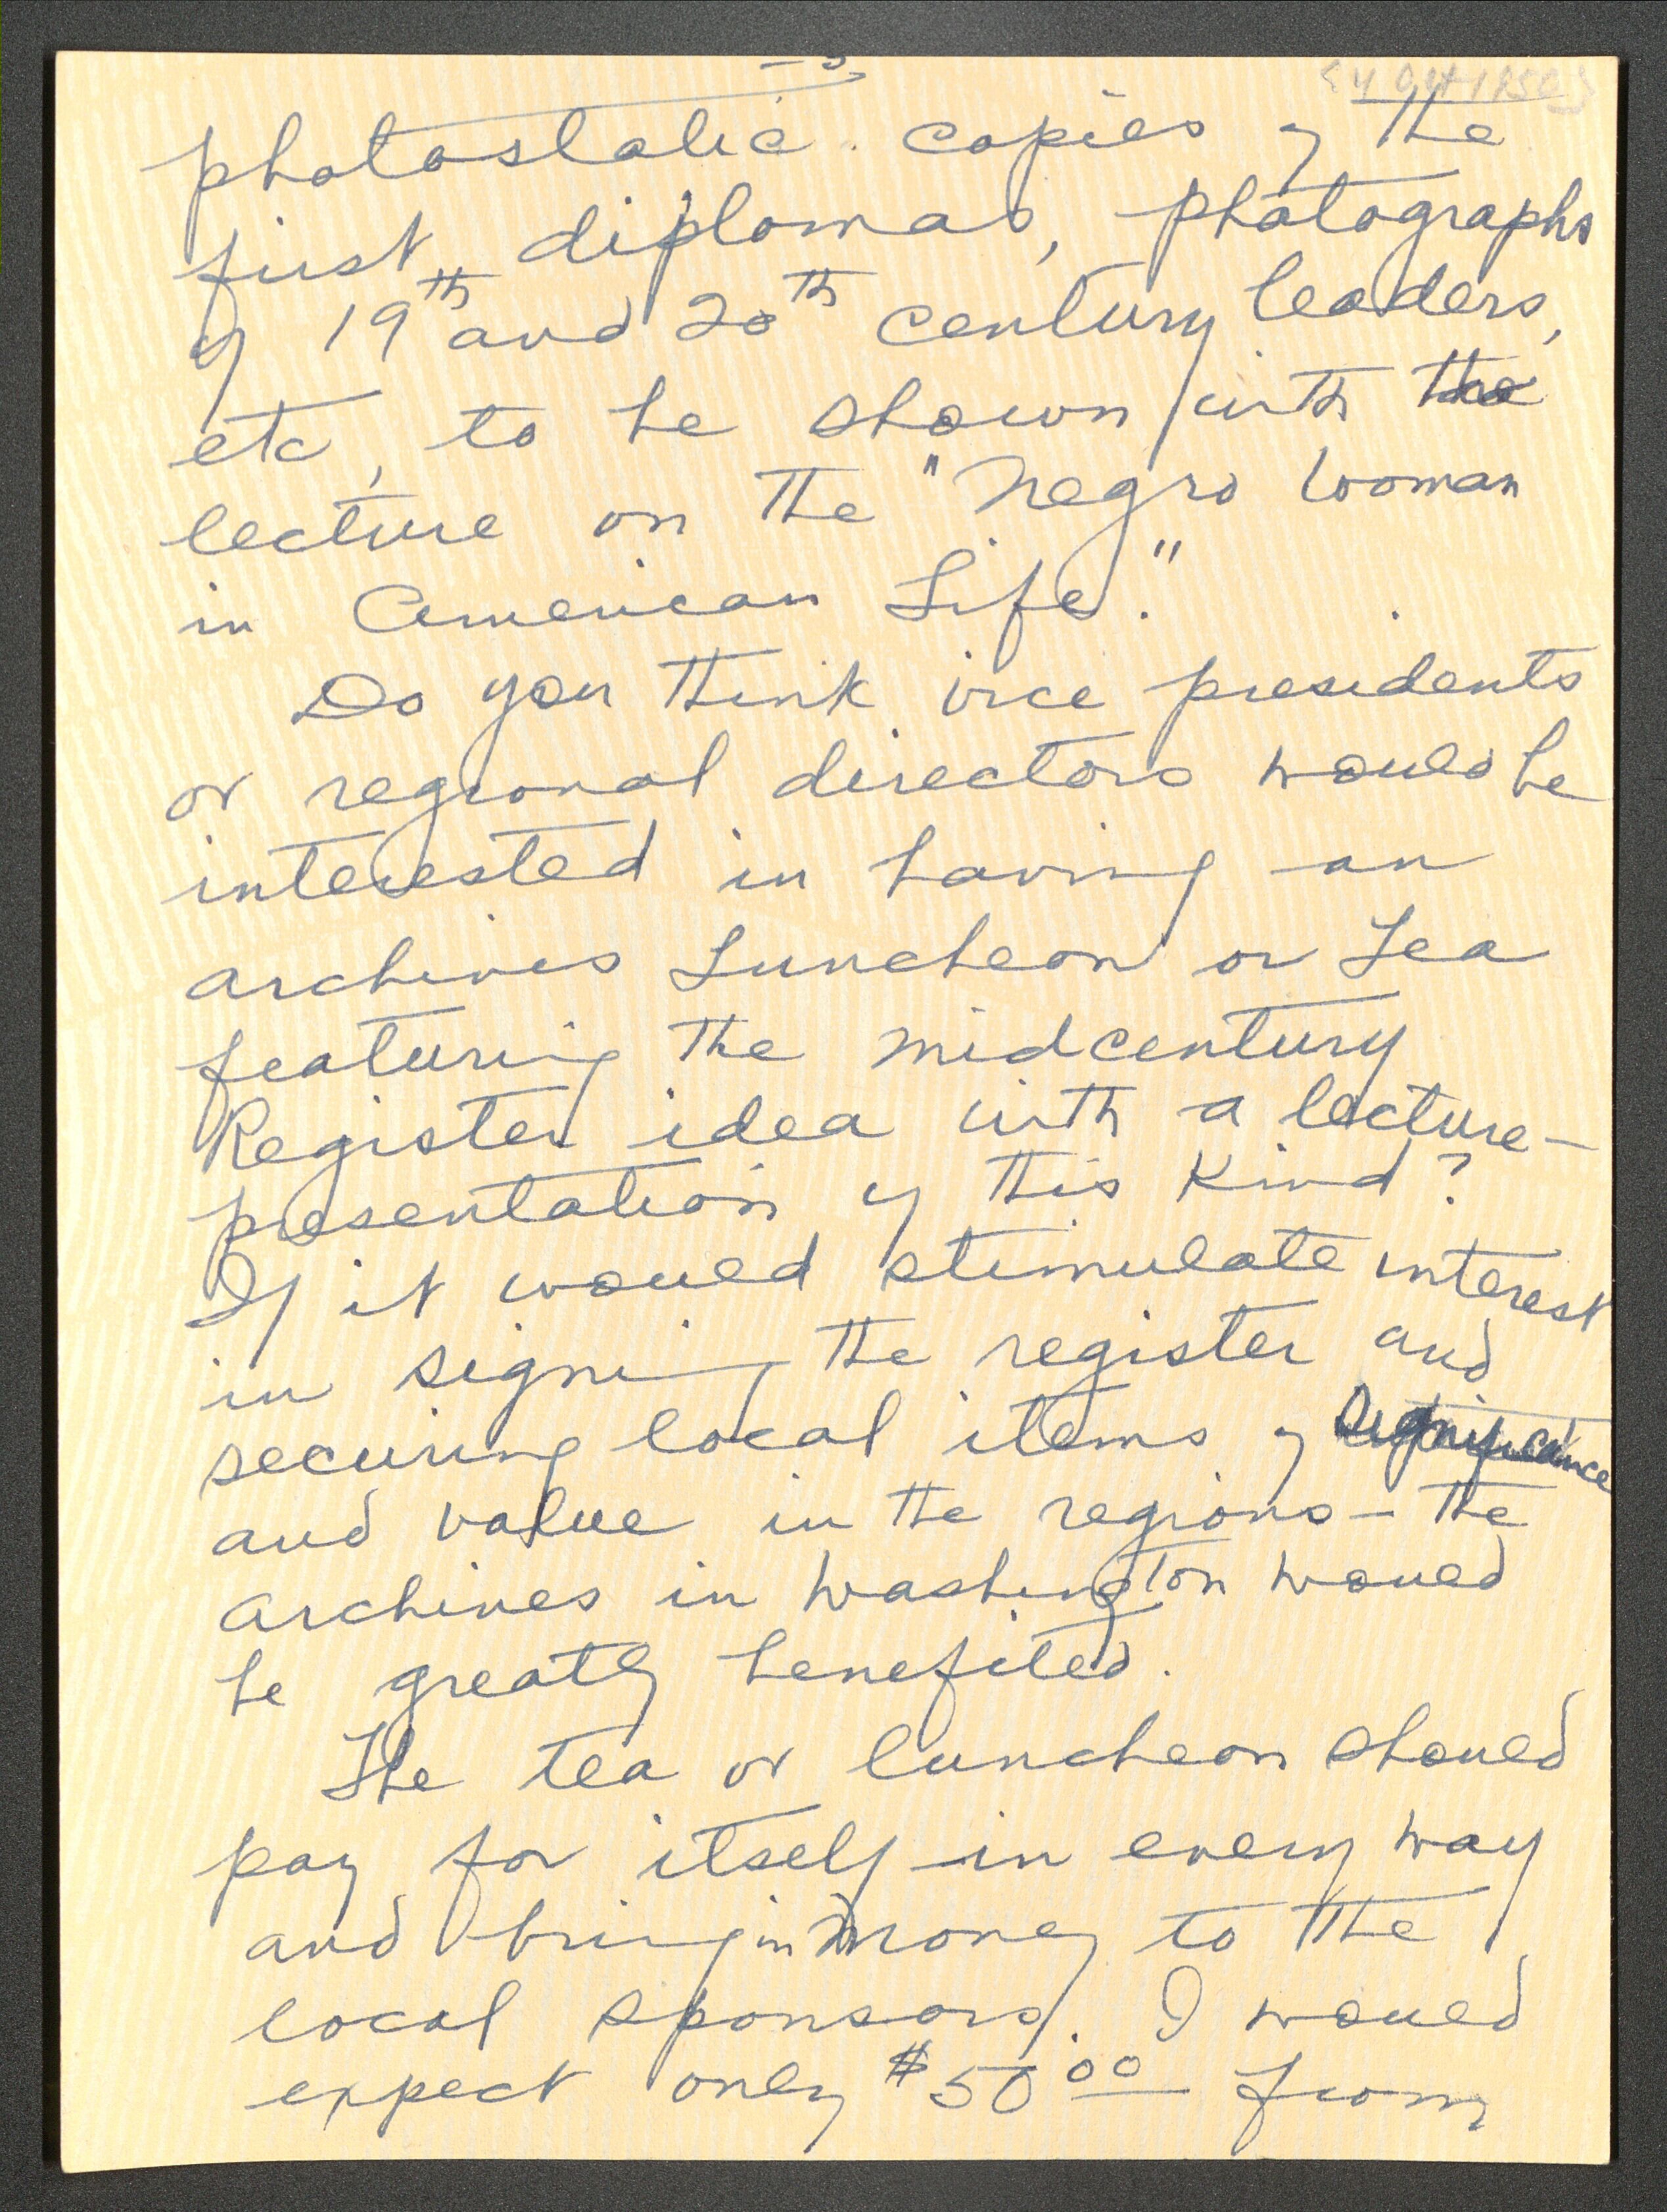 photostatic copies of the
first diplomas, photographs
of 19th and 20th century leaders,
etc, to be shown with the
lecture on the "Negro Woman
in American Life."
Do you think vice presidents
or regional directors would be
interested in having an
archives Luncheon or Tea
featuring the midcentury
Register idea with a lecture-
presentation of this kind?
If it would stimulate interest
in signing the register and
securing local items of significance
and value in the regions - the
archives in Washington would
be greatly benefited.
The tea or luncheon should
pay for itself in every way
and bring in money to the
local sponsors. I would
expect only $50.00 from